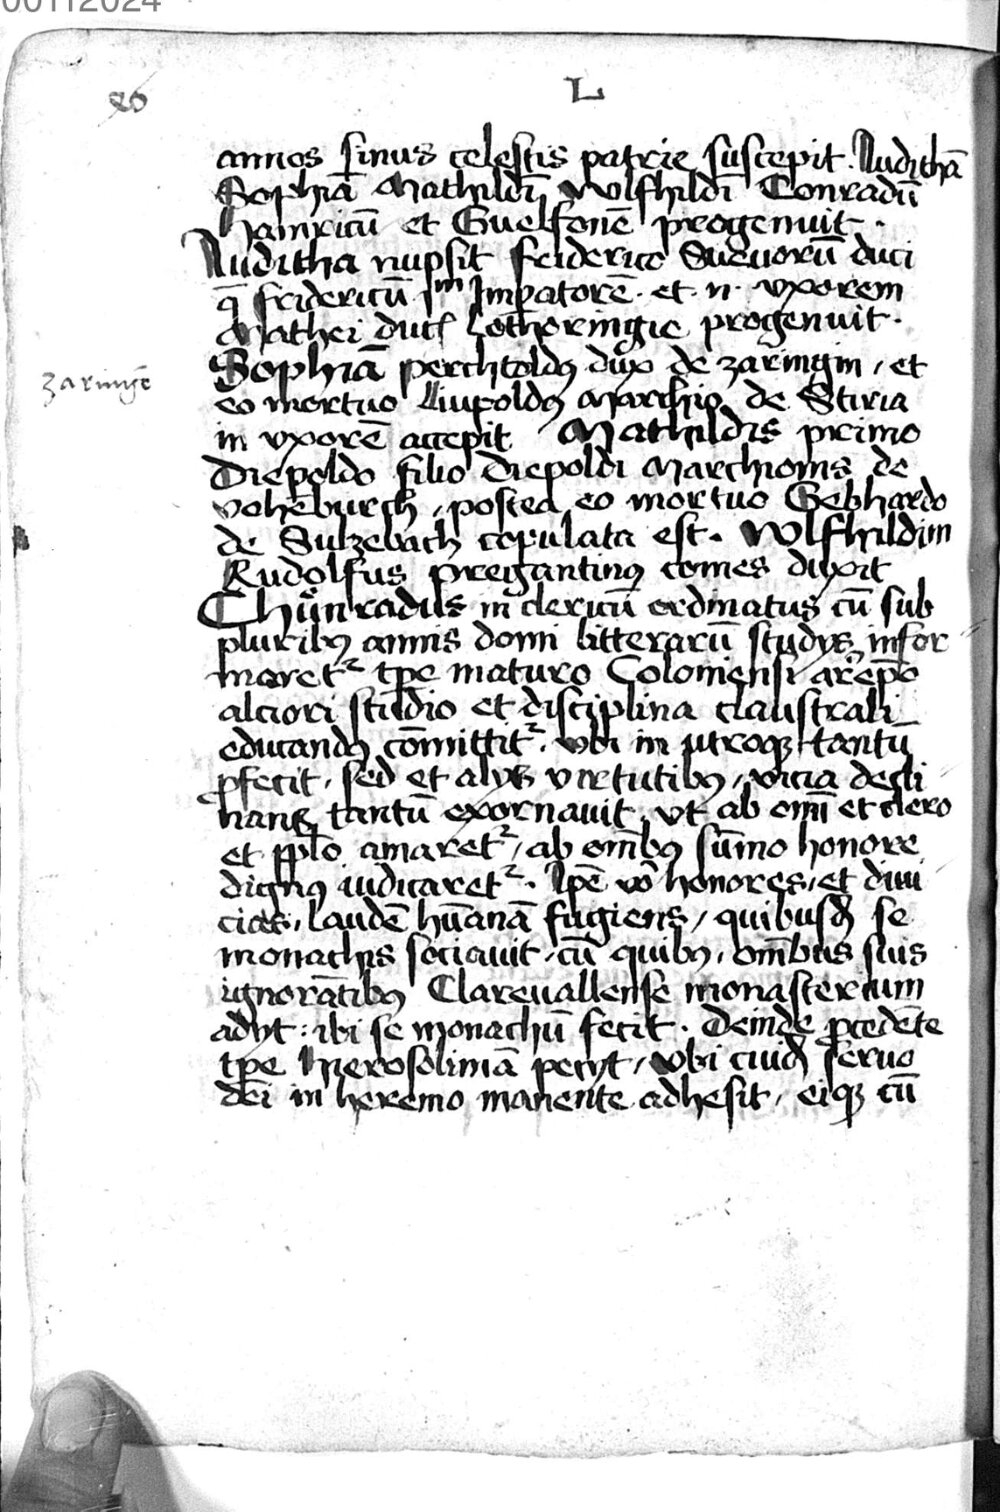 00112024
L
annos sinus celestis patrie suscepit. Iudithā
Sophiā Mathildī Wlfhildī Conradū
Hainricū et Guelfonē progenuit.
Iuditha nupsit friderico Sueuorū duci
q̄ fridericū Impatorē. et. n. vxorem
Mathei duc̄ Lothoringie progenuit.
Sophiā perchtoldꝰ dux de zaringin, et
zaringē
eo mortuo Liupoldꝰ Marchio de Stiria
in vxorē accepit Mathildis primo
Diepoldo filio Diepoldi Marchionis de
vohēburch, postea eo mortuo Gebhardo
de Sulzebach copulata est. Wlfhildim
Rudolfus pregantinꝰ comes duxit
Chůnradus in clericū ordinatus cū sub
pluribꝰ annis domi litterarū studys infor
maretᷣ tpe maturo Coloniensi arēpo
alciori studio et disciplina claustrali
educandꝰ cōmittitᷣ. vbi in utroqꝫ tantū
ꝓfecit, sed et alys virtutibꝰ, vicia decli
nans tantū exornauit, vt ab omī et clero
et pplo amaretᷣ, ab omībꝰ sūmo honore
dignꝰ iudicaretᷣ. Ipē vō honores, et diui
cias, laudē hūanā fugiens, quibusd̄ se
monachis sociauit, cū quibꝰ, omībus suis
ignorātibꝰ Clareuallense monasterium
adyt: ibi se monachū fecit. Deinde ꝓcedēte
tpe hierosolimā pecyt, vbi cuid̄ seruo
dei in heremo manente adhesit, eiqꝫ cū